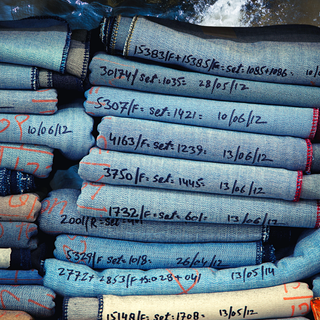 15383/F+15385/F= set= 1085+1086=
30174/ set= 1035= 28/05/12
5307/F= set= 1421= 10/06/12
10/06/12
4163/F= set= 1239= 13/06/12
3750/F= set= 1445= 13/06/12
1732/F= set= 601= 13/06/12
5329/F= set= 1018= 26/04/12
2772+2853/F= 13/05/14
15148/F= set= 1708= 13/05/12